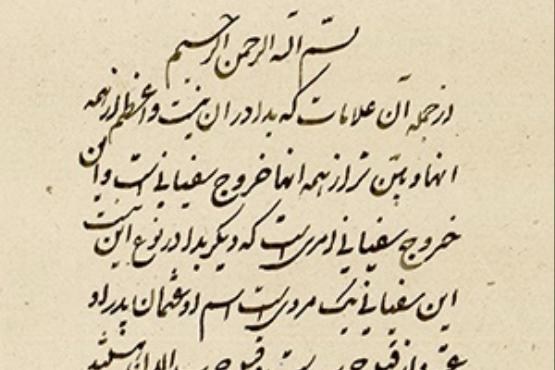 بسم الله الرحمن الرحیم
از جمله آن علامات که بدا در ان نیست و اعظم از همه
انها و بین تر از همه انها خروج سفیانی است و این
خروج سفیانی امری است که دیگر بدا در نوع این نیست
این سفیانی یک مردی است اسم او عثمان پدر او